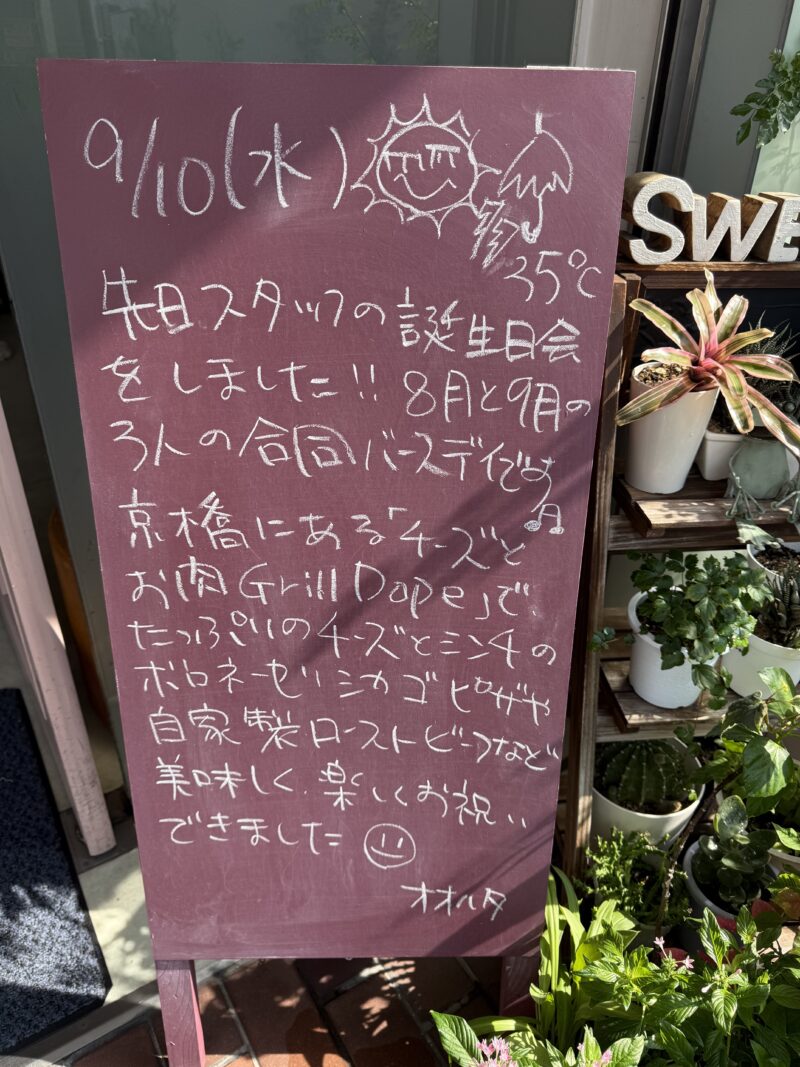 9/10(水)
35℃
先日スタッフの誕生日会
をしました!! 8月と9月の
3人の合同バースデイです♫
京橋にある「チーズと
お肉Grill Dope」で、
たっぷりのチーズとミンチの
ボロネーゼシカゴピザや
自家製ローストビーフなど
美味しく、楽しくお祝い
できました
オオハタ
SWE